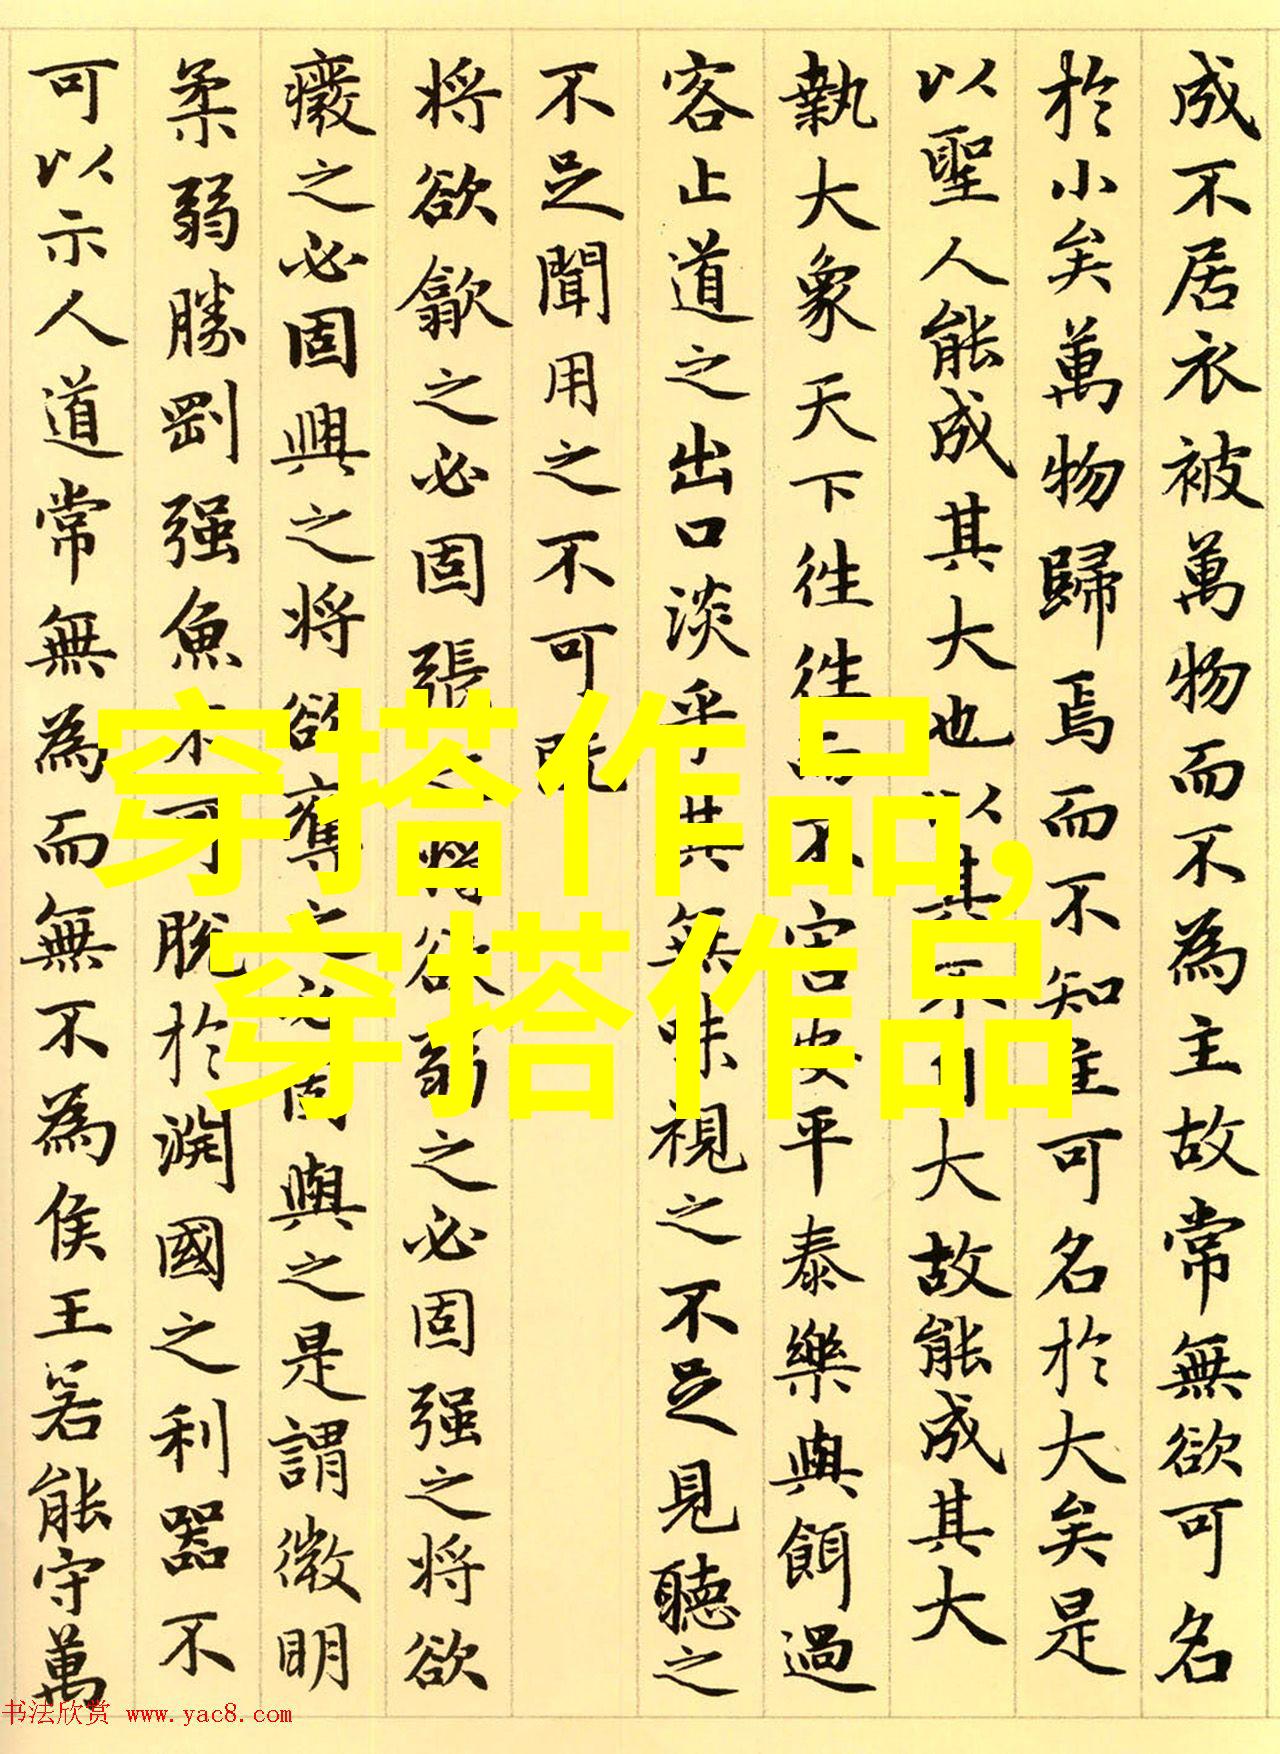 成不居衣被萬物而不為主故常無欲可名
於小矣萬物歸焉而不知主可名於大矣是
以聖人能成其大也以其不自大故能成其大
執大象天下往往而不害安平泰樂與餌過
客止道之出口淡乎其無味視之不足見聽之
不足聞用之不可既
将欲歙之必固張之将欲弱之必固强之将欲
癈之必固興之将欲奪之必固與之是謂微明
柔弱勝剛强魚不可脫於淵國之利器不
可以示人道常無為而無不為侯王若能守萬
穿搭作品,
穿搭作品
书法欣赏 www.yac8.com